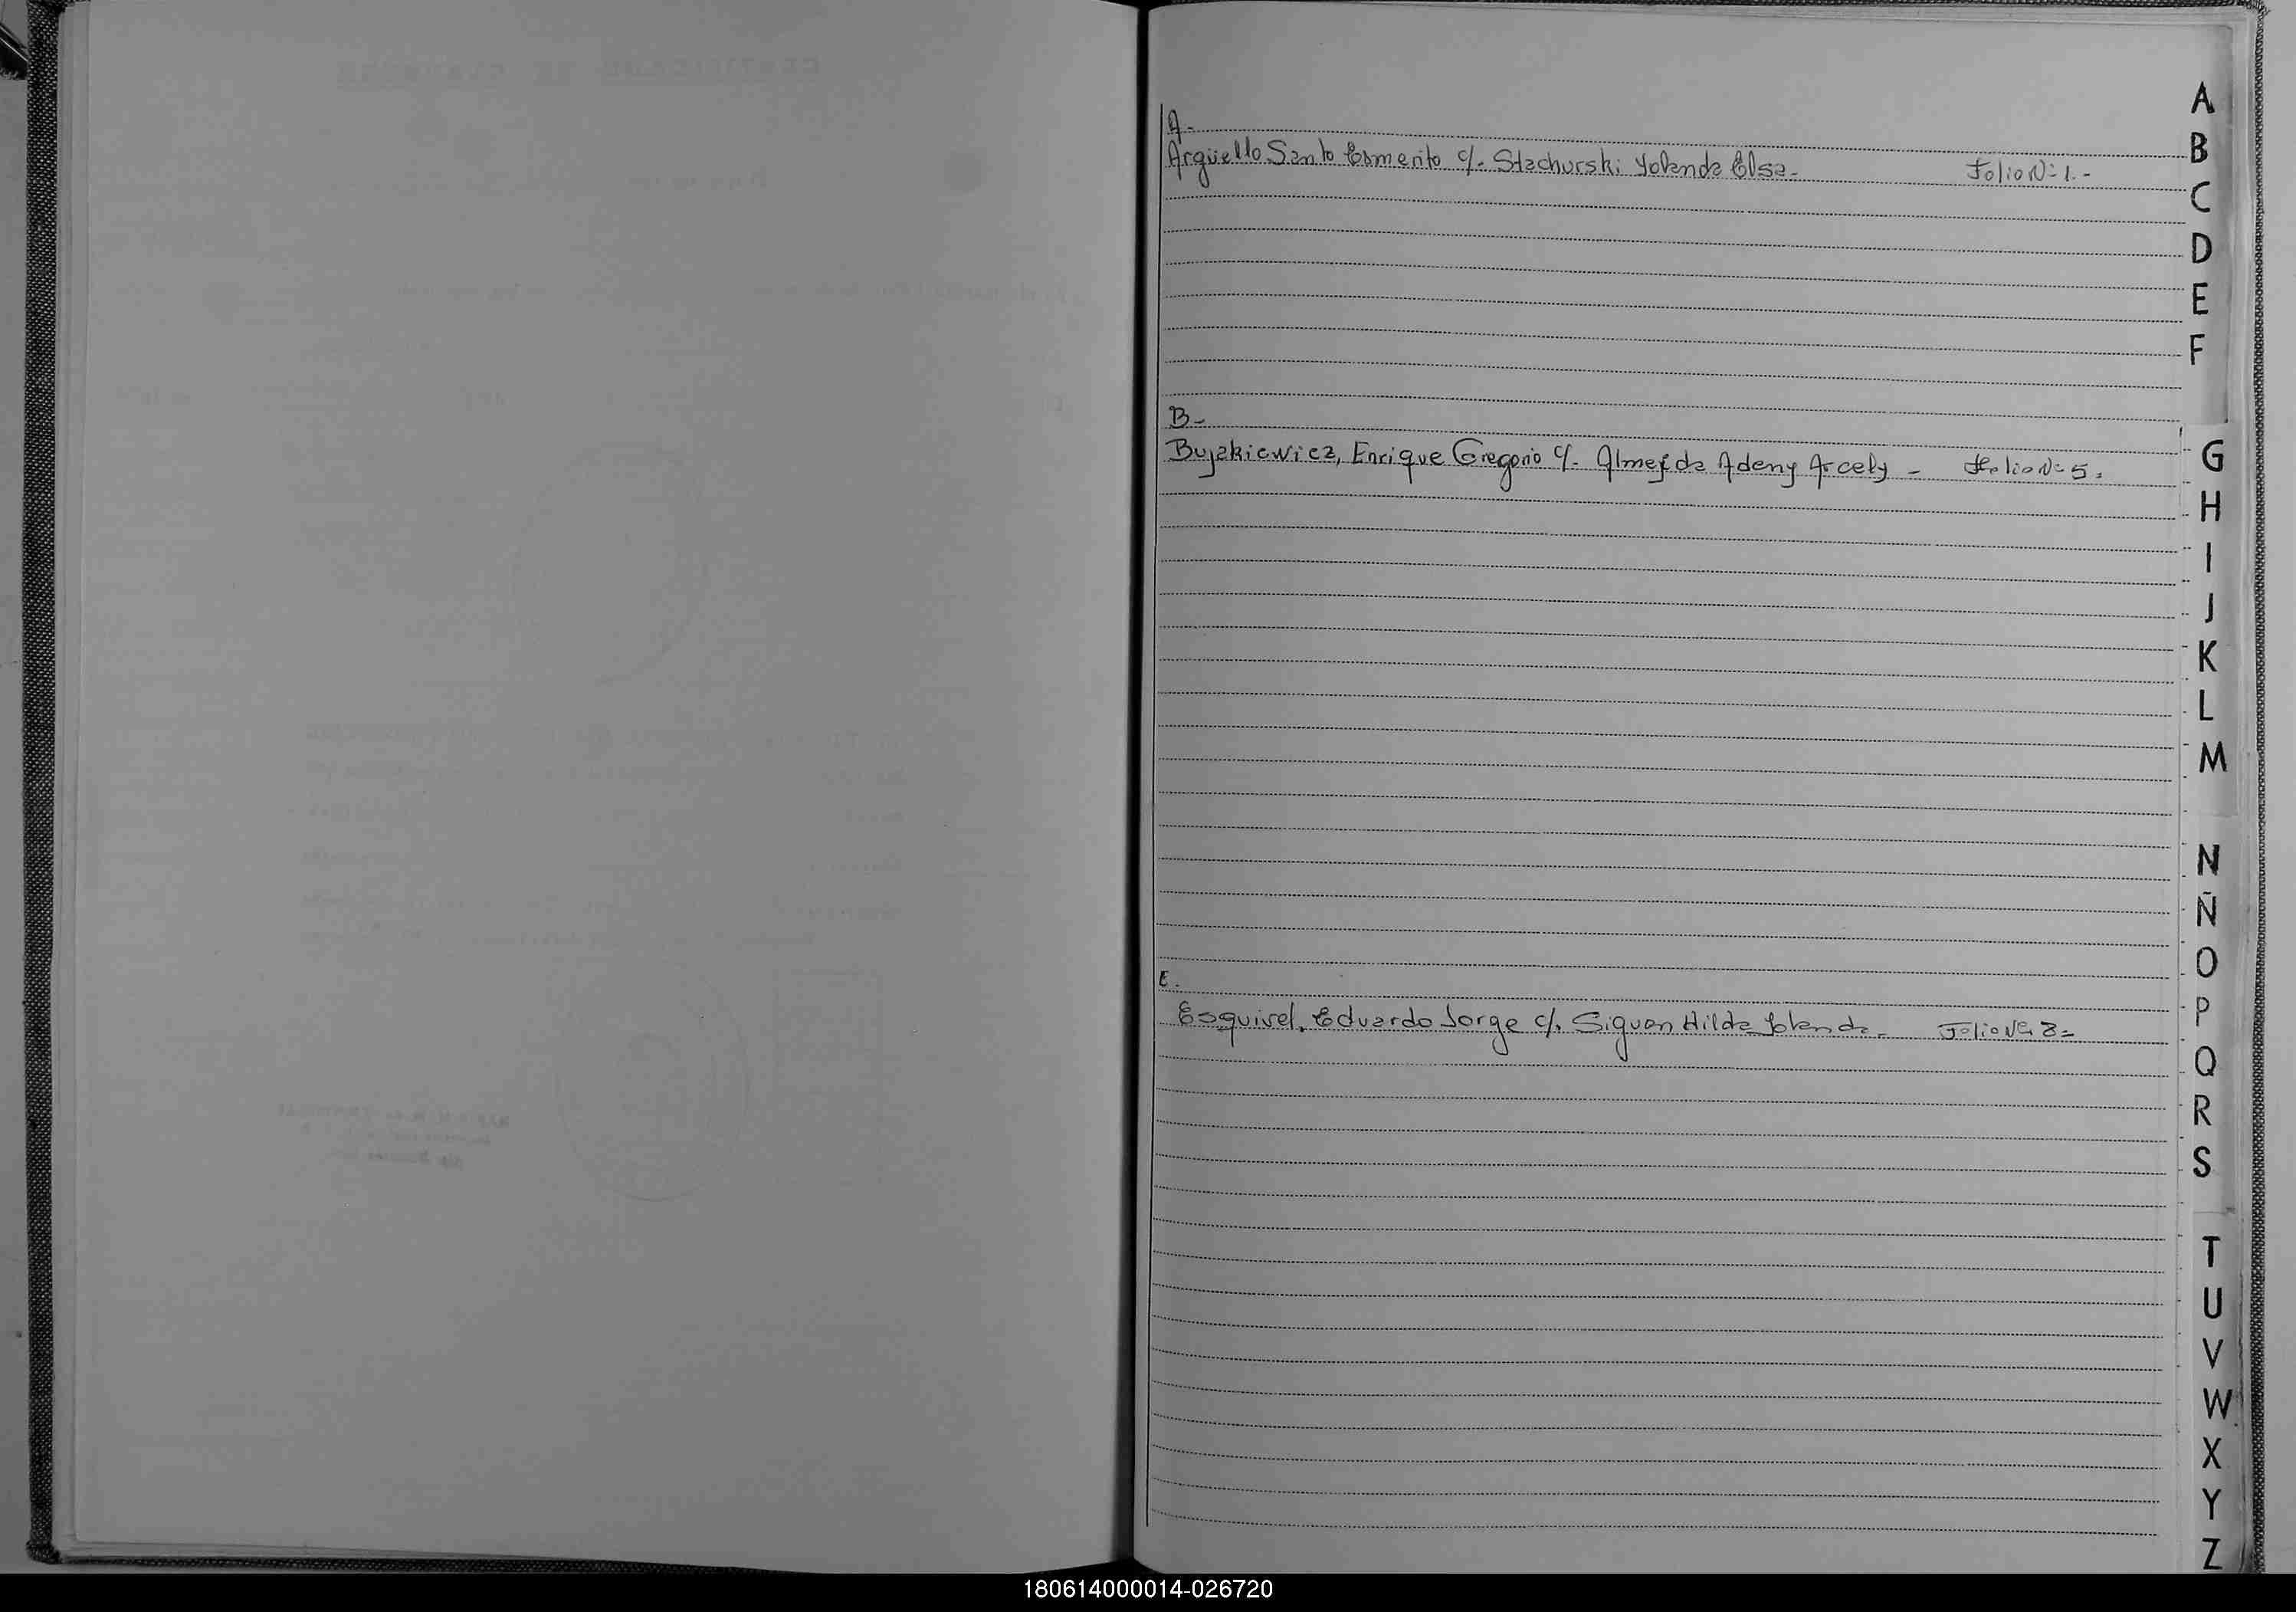 A-
Argüello Santo Esmerito c/. Stachurski Yolanda Elsa- Folio Nº 1.-
B-
Bujakiewicz, Enrique Gregorio c/. Almeida Adeny Arcely - Folio Nº 5.
E.
Esquivel, Eduardo Jorge c/. Siguon Hilda Yolanda. Folio Nº 8=
A
B
C
D
E
F
G
H
I
J
K
L
M
N
Ñ
O
P
Q
R
S
T
U
V
W
X
Y
Z
180614000014-026720